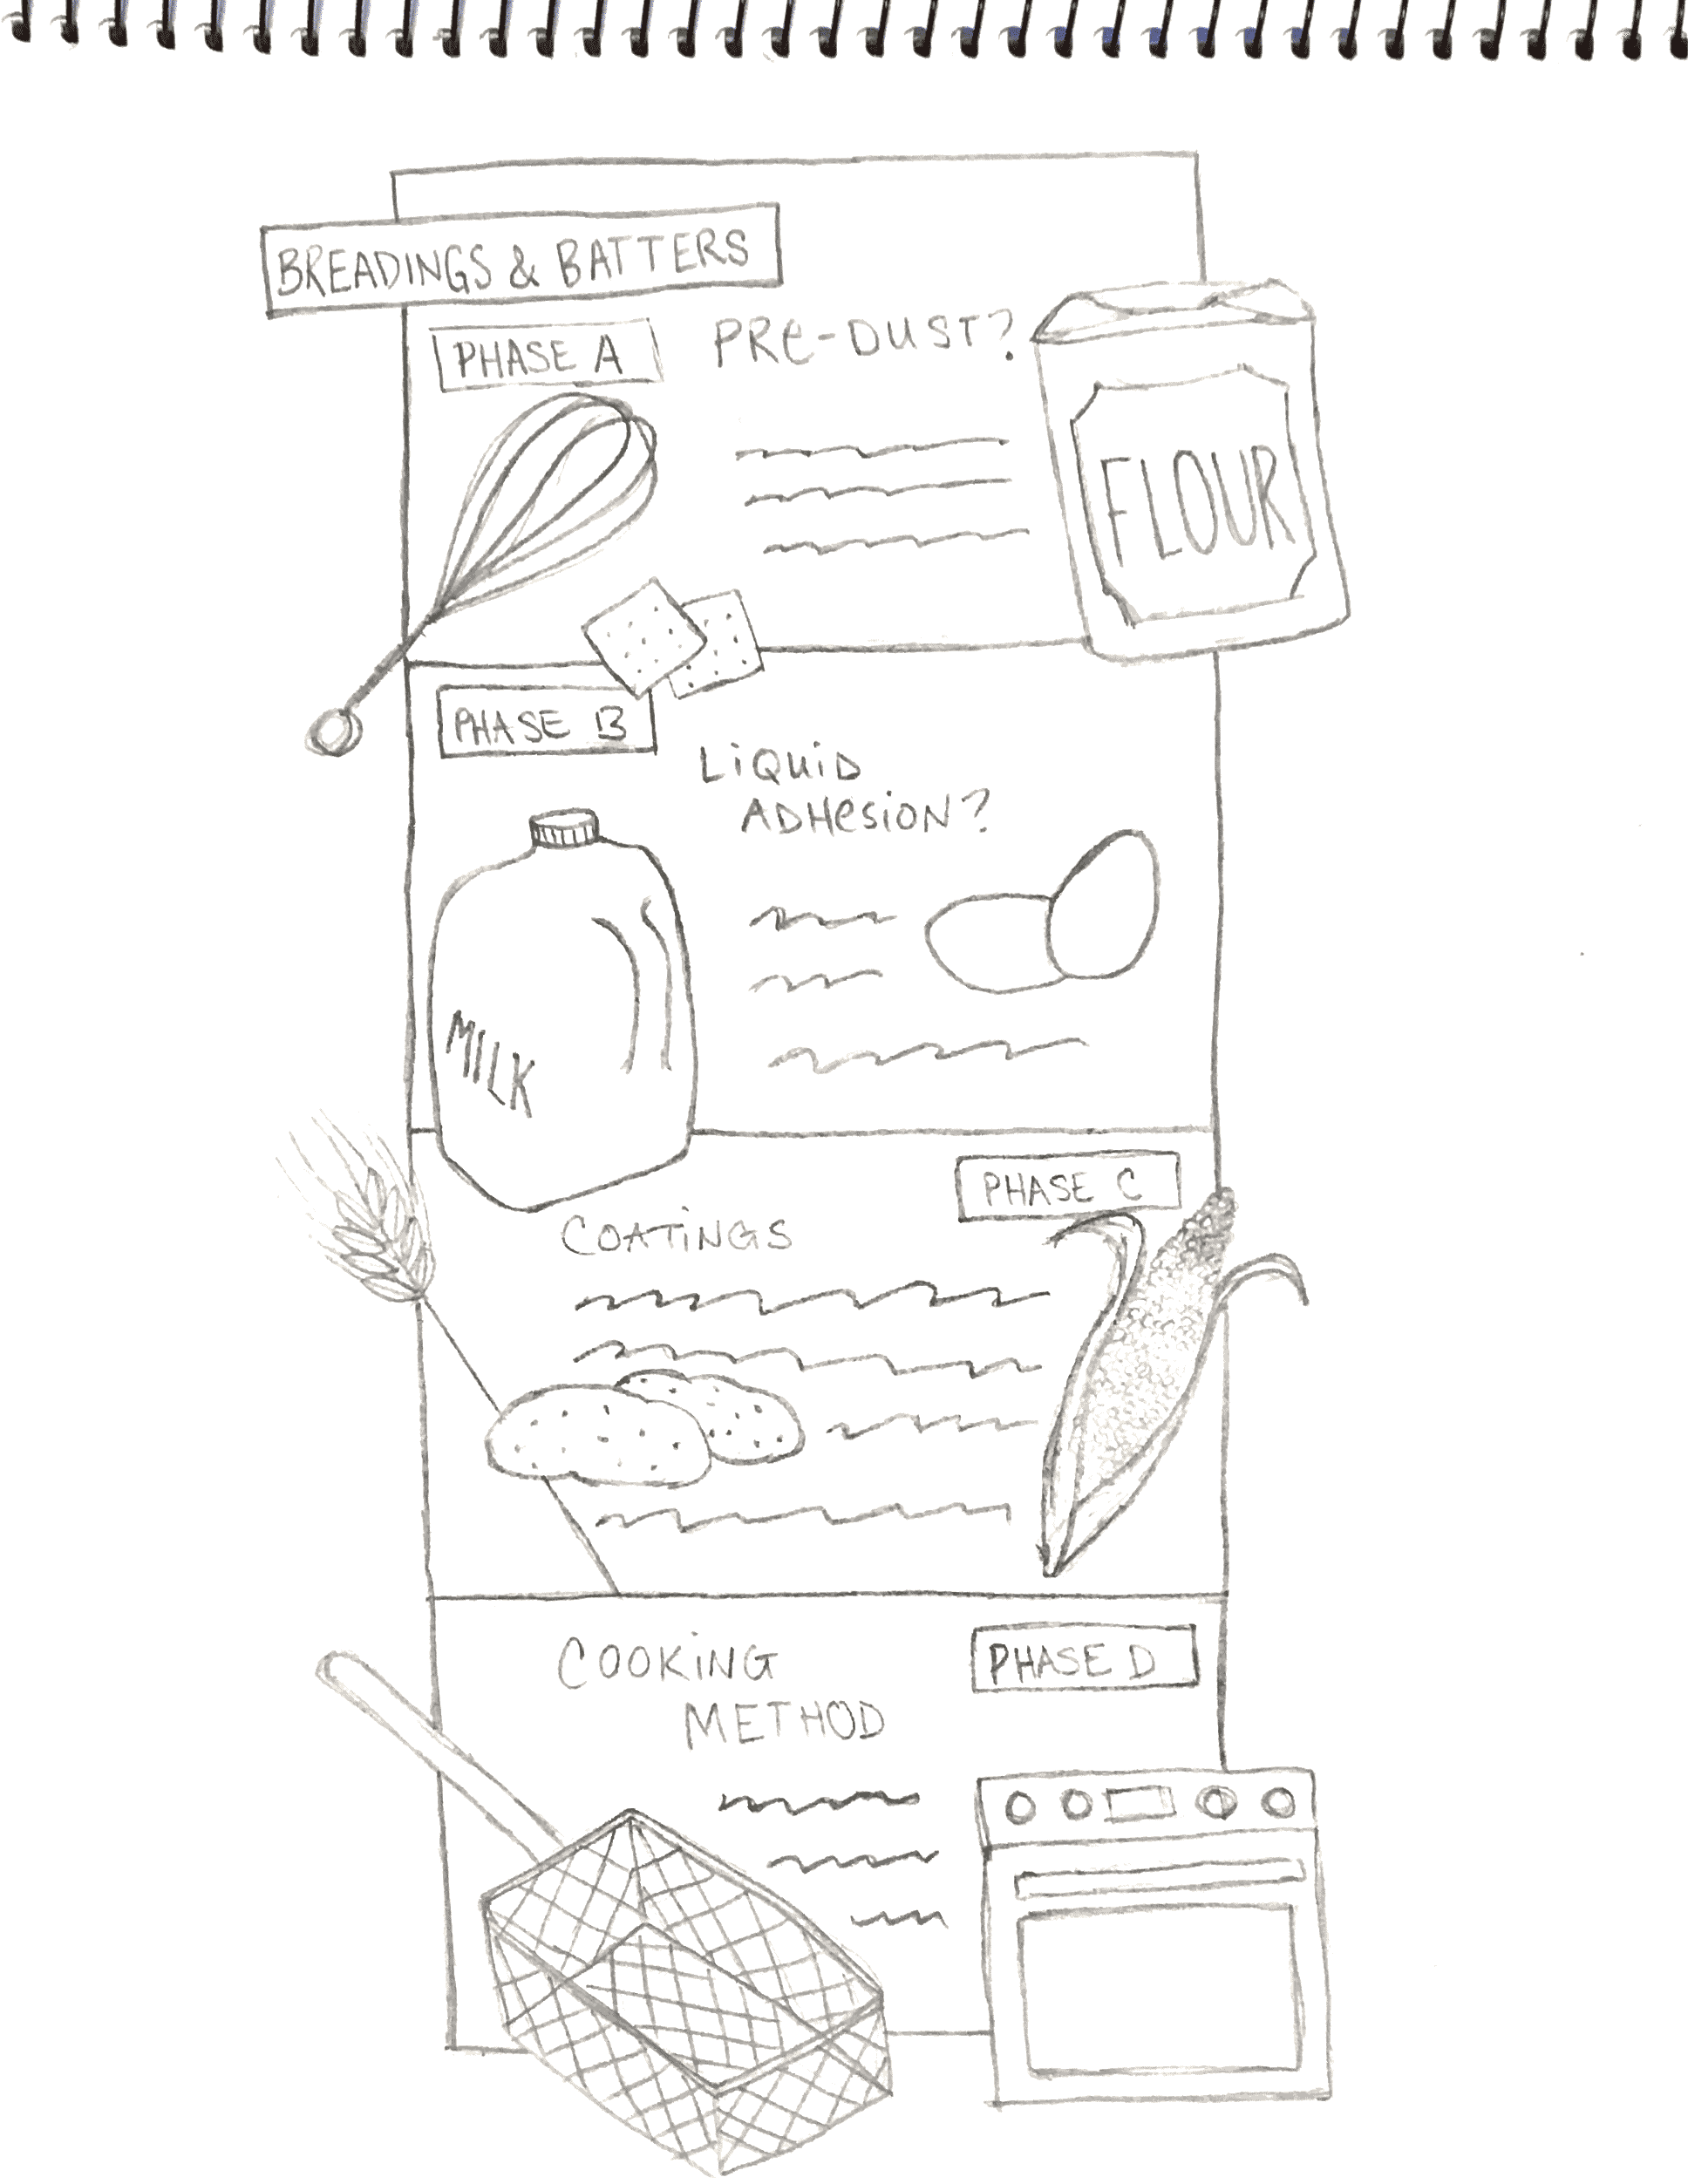 BREADINGS & BATTERS
PHASE A
PRe-DUST?
FLOUR
PHASE B
LiQUiD
ADHesiON?
MILK
PHASE C
COATiNGS
COOKiNG
METHOD
PHASE D